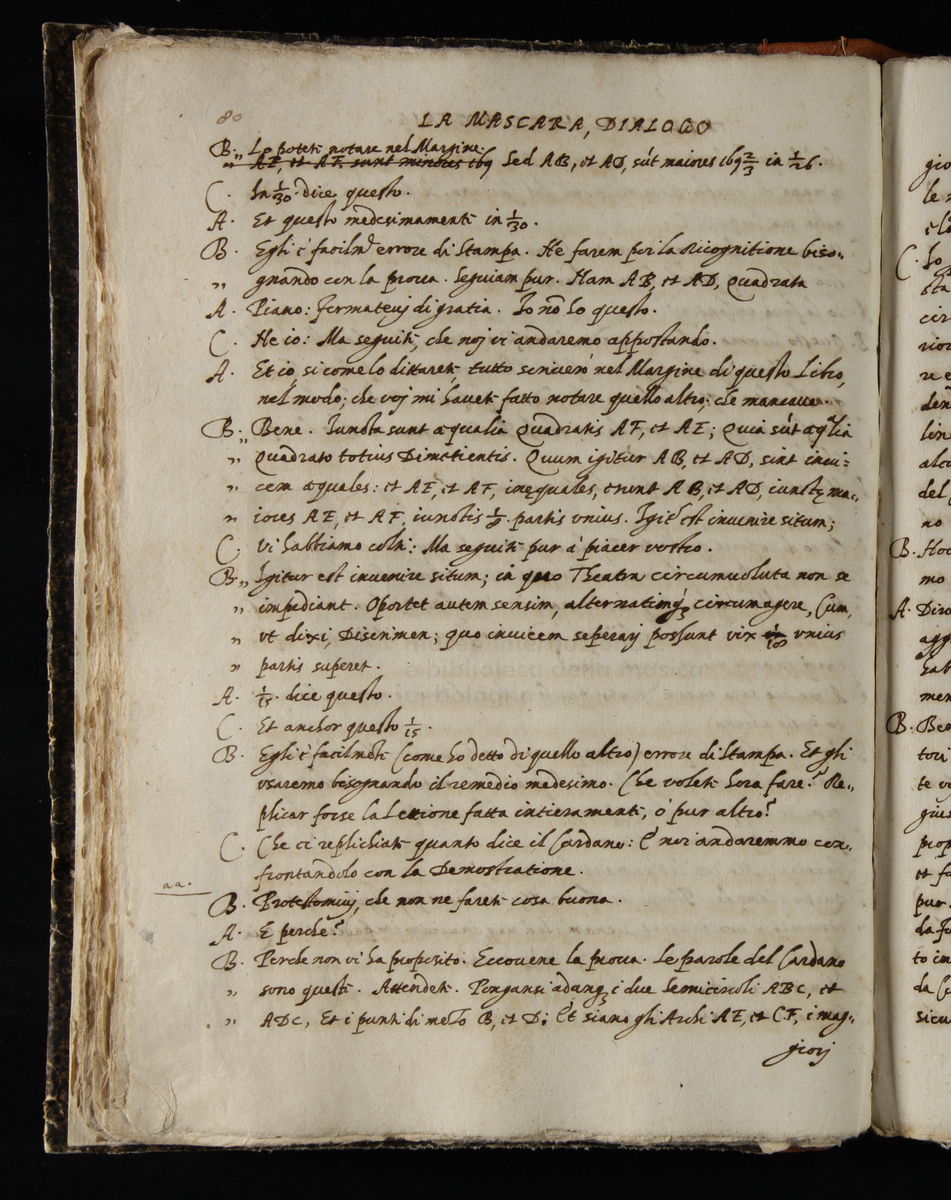 80
LA MASCARA, DIALOGO
B. Lo poteti notare nel Margine.
„ AE, et AF, sunt minores 169 Sed AB, et AD, sūt maiores 169 2/3 in 1/26.
C. In 1/30 dice questo.
A. Et questo medesimamente in 1/30.
B. Egli è facilmẽ errore di Stampa. Ne farem poi la Ricognitione biso„
„ gnando con la proua. Seguiam pur. Nam AB, et AD, Quadrata
A. Piano: fermateuj di gratia. Io nõ ho questo.
C. Ne io: Ma seguite, che noj vi andaremo appostando.
A. Et io, si come lo dittarete, tutto scriuerò nel Margine di questo Libro,
nel modo; che voj mi hauete fatto notare quello altro; che mancaua.
B. Bene. Iuncta sunt æqualia Quadratis AF, et AE; Quia sūt æqlia
„ Quadrato totius Dimetientis. Quum igitur AB, et AD, sint inui=
„ cem æquales: et AE, et AF, inęquales, erunt AB, et AD, iunctę ma„
„ iores AE, et AF, iunctis partis vnius. Igitr est inuenire situm;
C. Vi habbiamo colti: Ma seguite pur à piacer vostro.
B. „ Igitur est inuenire situm; in quo Theatra circumuoluta non se
„ impediant. Oportet autem sensim, alternatimq; circumagere, Cum,
„ vt dixi, Discrimen; quo inuicem seperarj possunt vix vnius
„ partis superet.
A. 1/15. dice questo.
C. Et anchor questo 1/15.
B. Egli è facilmẽte (come ho detto di quello altro) errore di Stampa. Et gli
vsaremo bisognando il remedio medesimo. Che volete hora fare? Re„
plicar forse la Lettione fatta intieramente, ò pur altro?
C. Che ci replichiate quanto dice il Cardano: È noi andaremmo con„
frontandolo con la Demostratione.
aa.
B. Protestomiuj, che non ne farete cosa buona.
A. E perche?
B. Perche non vi ha proposito. Eccouene la proua. Le parole del Cardano
„ sono queste. Attendete. Pongansi adunq; i due Semicircoli ABC, et
„ ADC, Et i punti di mezo B, et D; Et siano gli Archi AE, et CF, i mag„
giorj